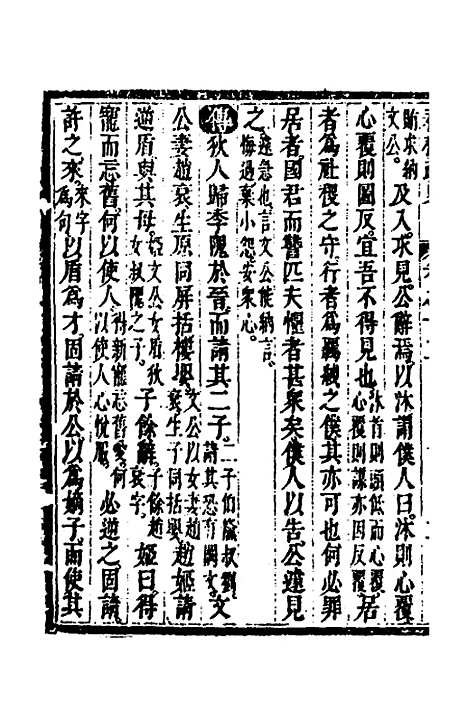 求納文公。及入。求見。公辭焉。以沐謂僕人曰。沐則心覆。
心覆則圖反。宜吾不得見也。沐首則頭低而心覆。心覆則謀亦因反覆。居
者爲社稷之守。行者爲羈紲之僕。其亦可也。何必罪
居者。國君而讐匹夫。懼者甚衆矣。僕人以告。公遽見
之。遽急也。言文公能納言。悔過棄小怨安衆心。
傳狄人歸季隗於晉。而請其二子。二子伯鯈叔劉。請其恐有闕文。文
公妻趙衰。生原同屏括樓嬰。文公以女妻趙衰生子同括嬰。趙姬請
逆盾與其母。姬文公女。盾狄女叔隗之子。子餘辭。子餘趙衰字。姬曰。得
寵而忘舊。何以使人。得新寵忘舊愛。何以使人心悅服。必逆之。固請。
許之。來。來字爲句。以盾爲才。固請於公。以爲嫡子。而使其